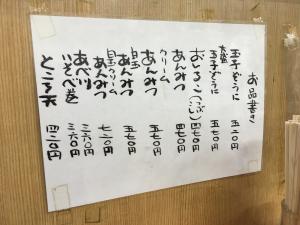 お品書き
玉子ぞうに 五二〇円
玉子ぞうに 五七〇円
おしるこ(つぶ/こし) 四七〇円
あんみつ 四七〇円
クリームあんみつ 五七〇円
白玉あんみつ 五七〇円
白玉クリームあんみつ 七二〇円
あべ川 三六〇円
いそべ巻 三六〇円
ところ天 四二〇円